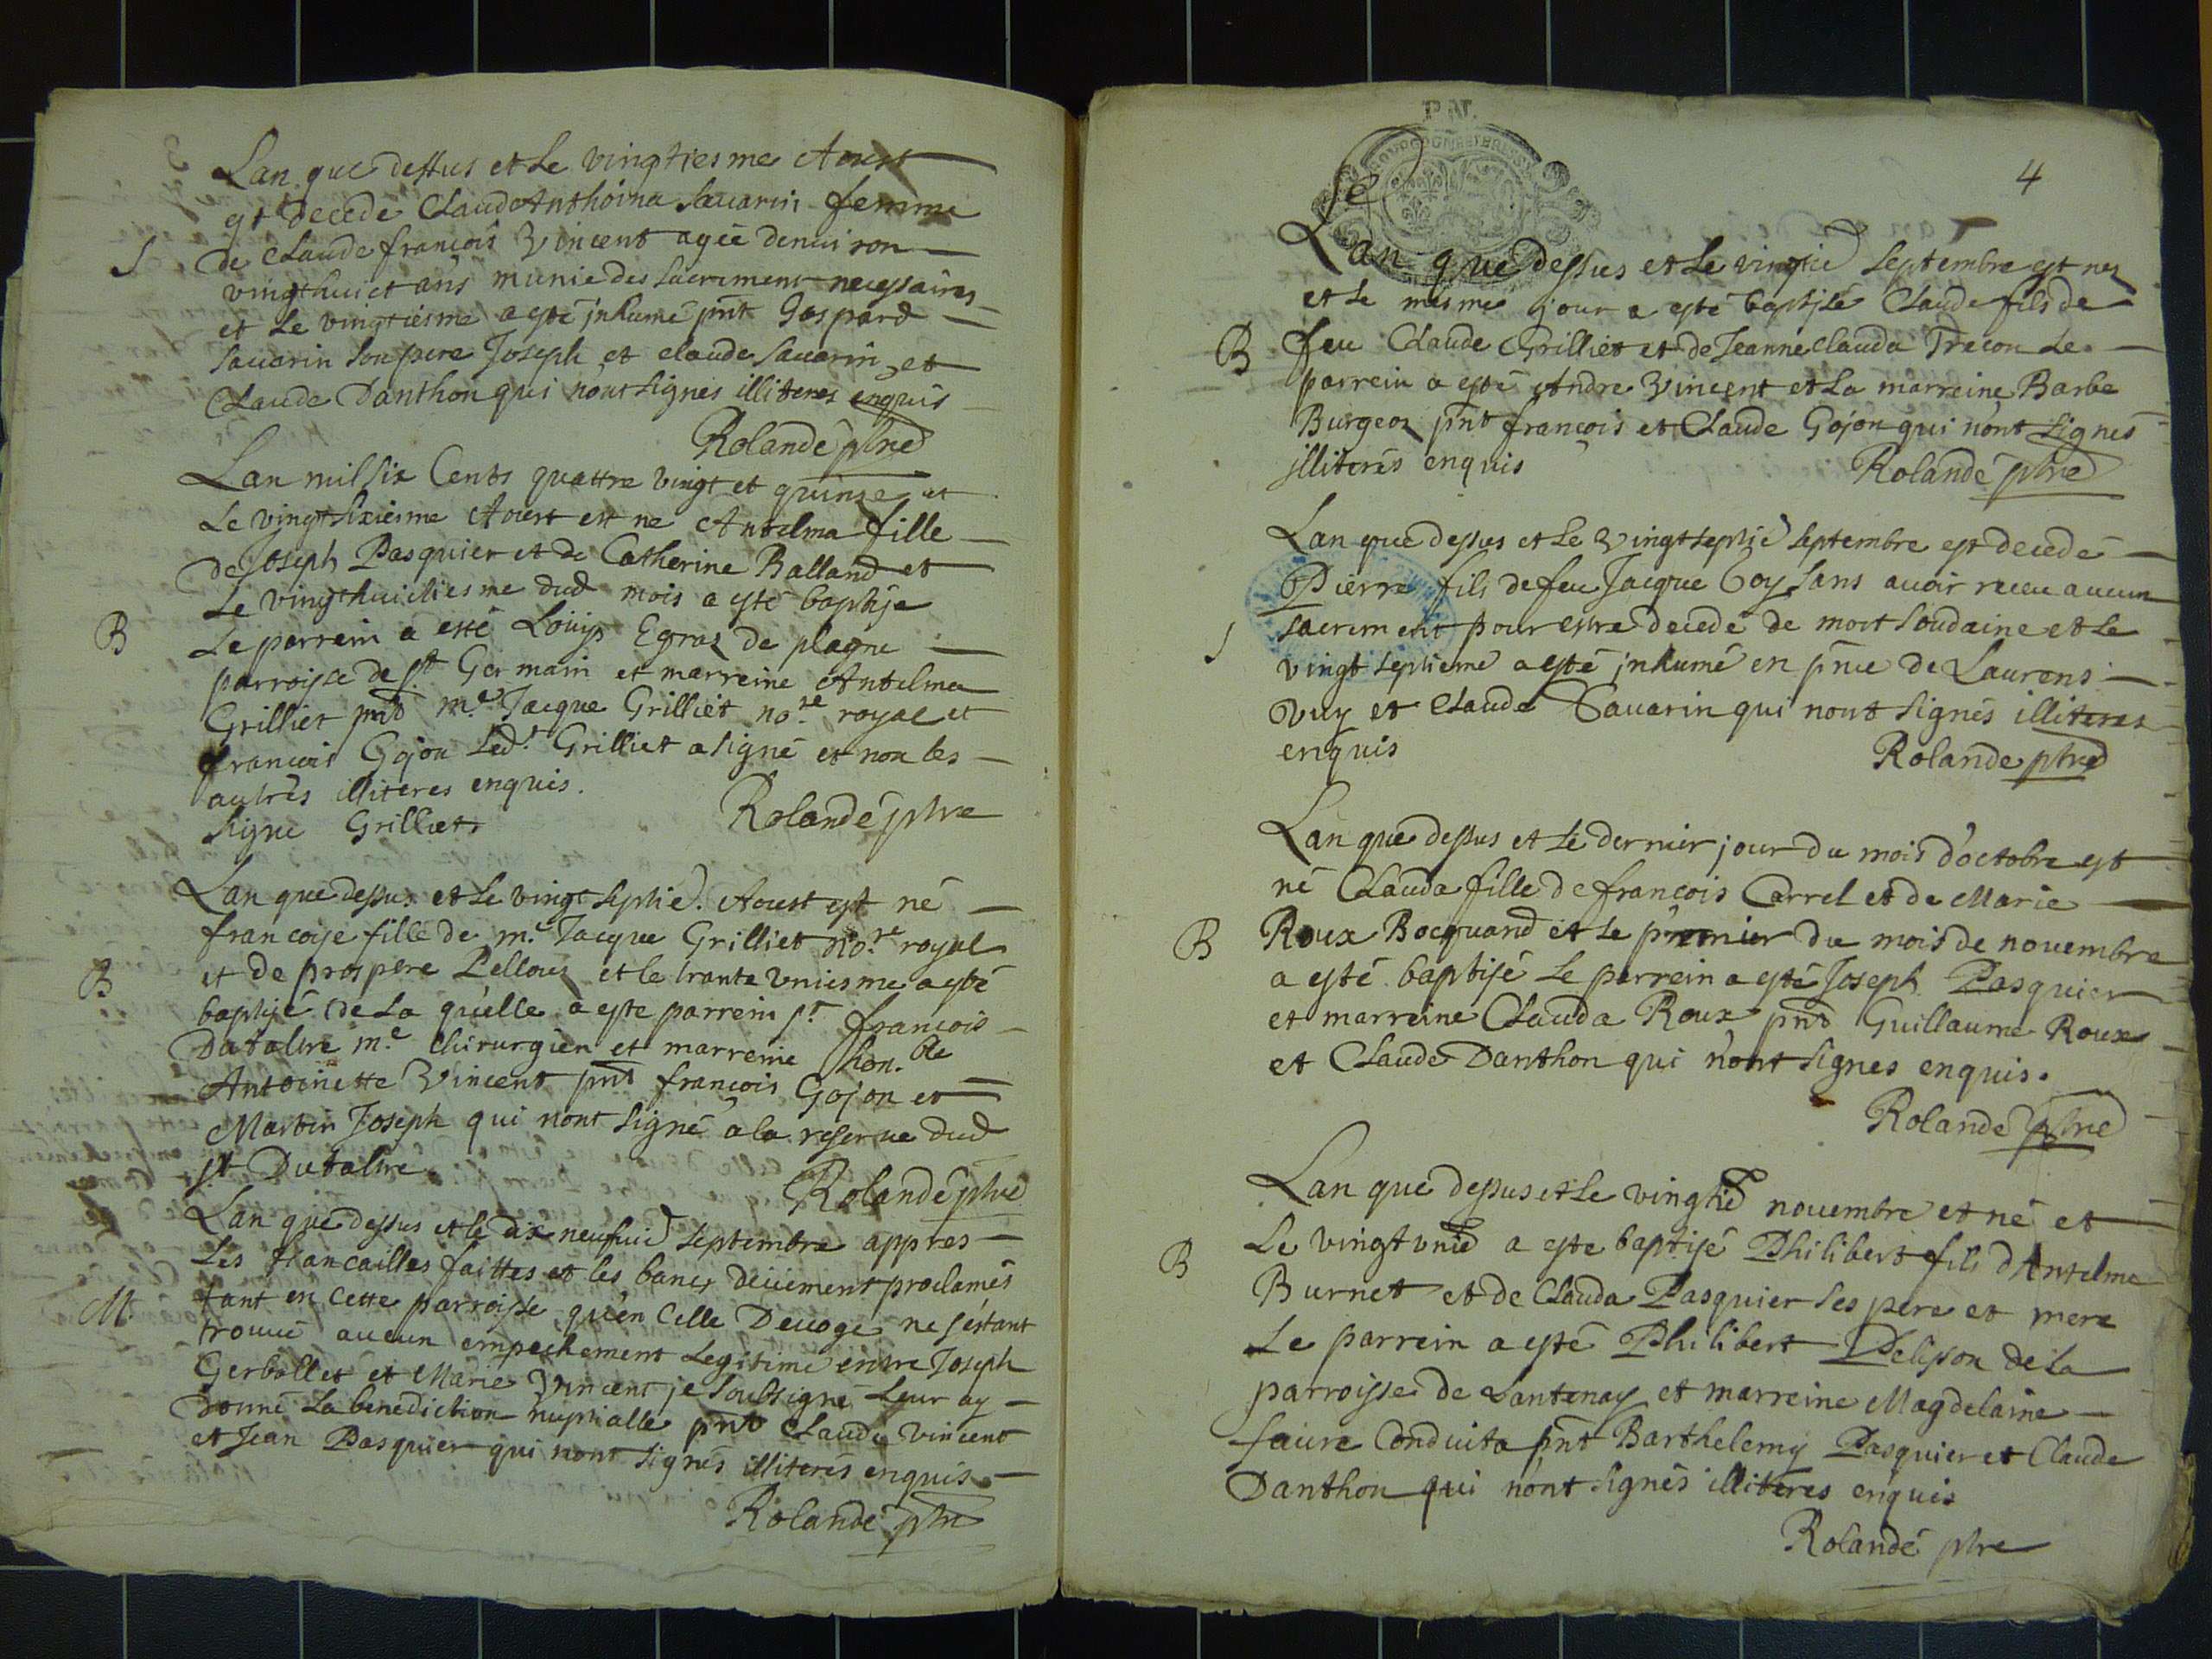 Lan que dessus et le vingtiesme Aoust
est decedé Claud Anthoina Savarin femme
S
de Claude francois Vincent agée denuiron
vingt huict ans munie des sacrement necessaires
et le vingtiesme a esté jnhumé pnt Gaspard
Sauarin son pere Joseph et claude sauarin et
Claude Danthon qui nont signes illiteres enquis
Rolande ptre
Lan mil six Cents quattre vingt et quinze et
Le vingt sixiesme Aoust est ne Antelma fille
de Joseph Pasquier et de Catherine Balland et
Le vingthuictiesme dud mois a esté baptisé
B
Le parrein a esté Loüys Egraz de plagne
parroisse de st Germain et marreine Antelma
Grilliet pnt me Jacque Grilliet nore royal et
francois Gojon Led.t Grilliet a signé et non les
autres illiteres enquis.
Signe Grilliet
Rolande ptre
Lan que dessus et le vingt septie. Aoust est né
francoise fille de m.e Jacque Grilliet no.re royal
et de prospere Pellouz et le trante vniesme a esté
B
baptisé de La quelle a este parrein sr francois
Dutaltre m.e chirurgien et marreine hon.ble
Antoinette Vincent pnt francois Gojon et
Martin Joseph qui nont signé a la reserue dud
sr Dutaltre
Rolande ptre
Lan que dessus et le dix neufuie septembre appres
Les fiancailles faittes et les bancs deüement proclamés
M.
tant en cette parroisse qu'en celle Deuoge ne sestant
trouué aucun empechement Legitime entre Joseph
Gerbollet et Marie Vincent je soubsigné Leur ay
donné La benediction nuptialle pnt Claude Vincent
et Jean Pasquier qui nont signés illiterés enquis
Rolande ptre
4
Lan que dessus et le vingtie septembre est nez
et le mesme jour a esté baptisé Claude fils de
B
feu Claude Grilliet et de Jeanne Clauda Trecon Le
parrein a esté Andre Vincent et La marreine Barbe
Burgeoz pnt francois et Claude Gojon qui nont signés
jlliterés enquis
Rolande ptre
Lan que dessus et le Vingt septie septembre est decedé
Pierre fils de feu Jacque Coy sans auoir receu aucun
sacrement pour estre decedé de mort soudaine et le
S
vingt septieme a esté jnhumé en pnce de Laurens
Vuy et Claude Sauarin qui nont signés illiteres
enquis
Rolande ptre
Lan que dessus et le dernier jour du mois d'octobre est
né Clauda fille de francois Carrel et de Marie
B
Roux Bocquand et le premier du mois de nouembre
a esté baptisé Le parrein a esté Joseph Pasquier
et marreine Clauda Roux pnt Guillaume Roux
et Claude Danthon qui nont signes enquis.
Rolande ptre
Lan que dessus et le vingtie nouembre et né et
Le vingt vnie a este baptisé Philibert fils d'Antelme
B
Burnet et de Clauda Pasquier ses pere et mere
Le parrein a esté Philibert Pelisson de la
parroisse de Lantenay et marreine Magdelaine
faure Conduita pnt Barthelemy Pasquier et Claude
Danthon qui nont signés illiteres enquis
Rolande ptre